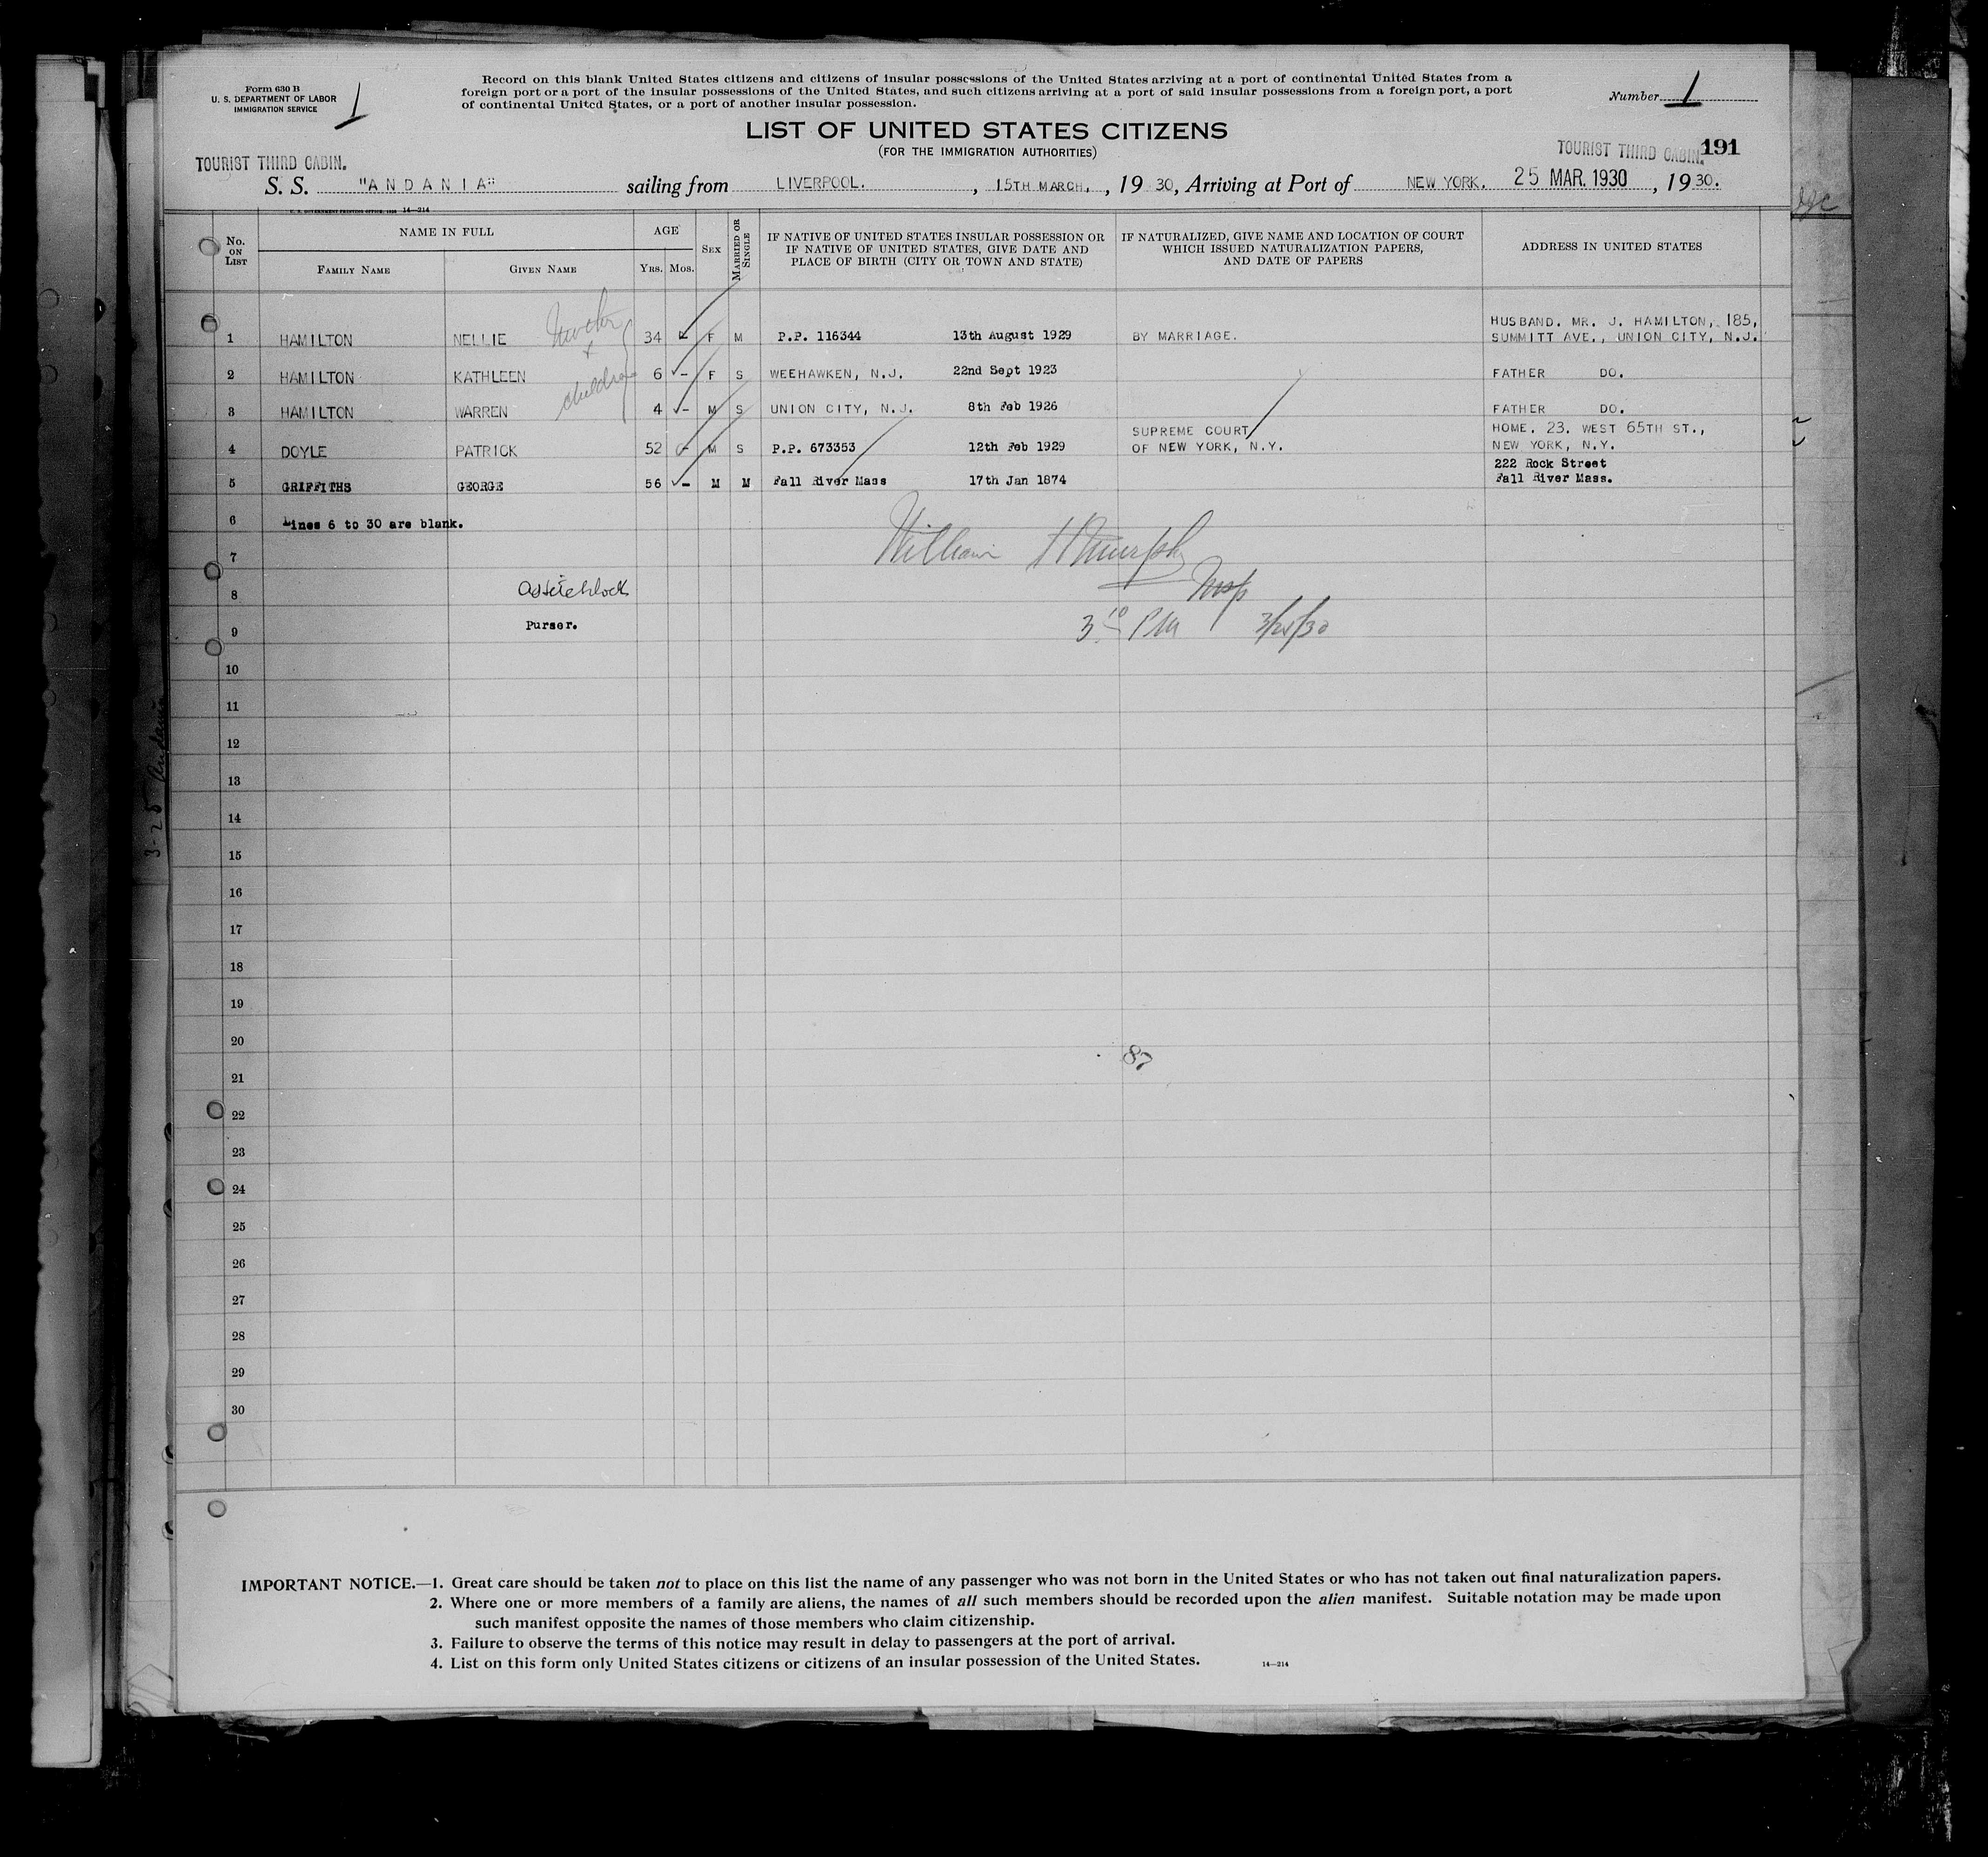 Form 630 B
U. S. DEPARTMENT OF LABOR
IMMIGRATION SERVICE
1
Record on this blank United States citizens and citizens of insular possessions of the United States arriving at a port of continental United States from a
foreign port or a port of the insular possessions of the United States, and such citizens arriving at a port of said insular possessions from a foreign port, a port
of continental United States, or a port of another insular possession.
Number 1
LIST OF UNITED STATES CITIZENS
(FOR THE IMMIGRATION AUTHORITIES)
TOURIST THIRD CABIN.
TOURIST THIRD CABIN. 191
S. S. "ANDANIA" sailing from LIVERPOOL. , 15TH MARCH, , 19 30, Arriving at Port of NEW YORK. 25 MAR. 1930 , 19 30.
U. S. GOVERNMENT PRINTING OFFICE, 1928 14—214
No. ON LIST
NAME IN FULL
FAMILY NAME
GIVEN NAME
AGE
YRS. MOS.
SEX
MARRIED OR SINGLE
IF NATIVE OF UNITED STATES INSULAR POSSESSION OR
IF NATIVE OF UNITED STATES, GIVE DATE AND
PLACE OF BIRTH (CITY OR TOWN AND STATE)
IF NATURALIZED, GIVE NAME AND LOCATION OF COURT
WHICH ISSUED NATURALIZATION PAPERS,
AND DATE OF PAPERS
ADDRESS IN UNITED STATES
HUSBAND. MR. J. HAMILTON, 185,
1 HAMILTON NELLIE Mother 34 F M P.P. 116344 13th August 1929 BY MARRIAGE. SUMMITT AVE., UNION CITY, N.J.
+
2 HAMILTON KATHLEEN children 6 - F S WEEHAWKEN, N.J. 22nd Sept 1923 FATHER DO.
3 HAMILTON WARREN 4 - M S UNION CITY, N.J. 8th Feb 1926 FATHER DO.
SUPREME COURT HOME. 23. WEST 65TH ST.,
4 DOYLE PATRICK 52 - M S P.P. 673353 12th Feb 1929 OF NEW YORK, N.Y. NEW YORK, N.Y.
222 Rock Street
5 GRIFFITHS GEORGE 56 - M M Fall River Mass 17th Jan 1874 Fall River Mass.
6 Lines 6 to 30 are blank.
William H Murphy
7
Insp
8
9 Purser.
3 10 PM 3/25/30
10
11
12
13
14
15
16
17
18
19
20
87
21
22
23
24
25
26
27
28
29
30
3-25 Andania
IMPORTANT NOTICE.—1. Great care should be taken not to place on this list the name of any passenger who was not born in the United States or who has not taken out final naturalization papers.
2. Where one or more members of a family are aliens, the names of all such members should be recorded upon the alien manifest. Suitable notation may be made upon
such manifest opposite the names of those members who claim citizenship.
3. Failure to observe the terms of this notice may result in delay to passengers at the port of arrival.
4. List on this form only United States citizens or citizens of an insular possession of the United States. 14—214